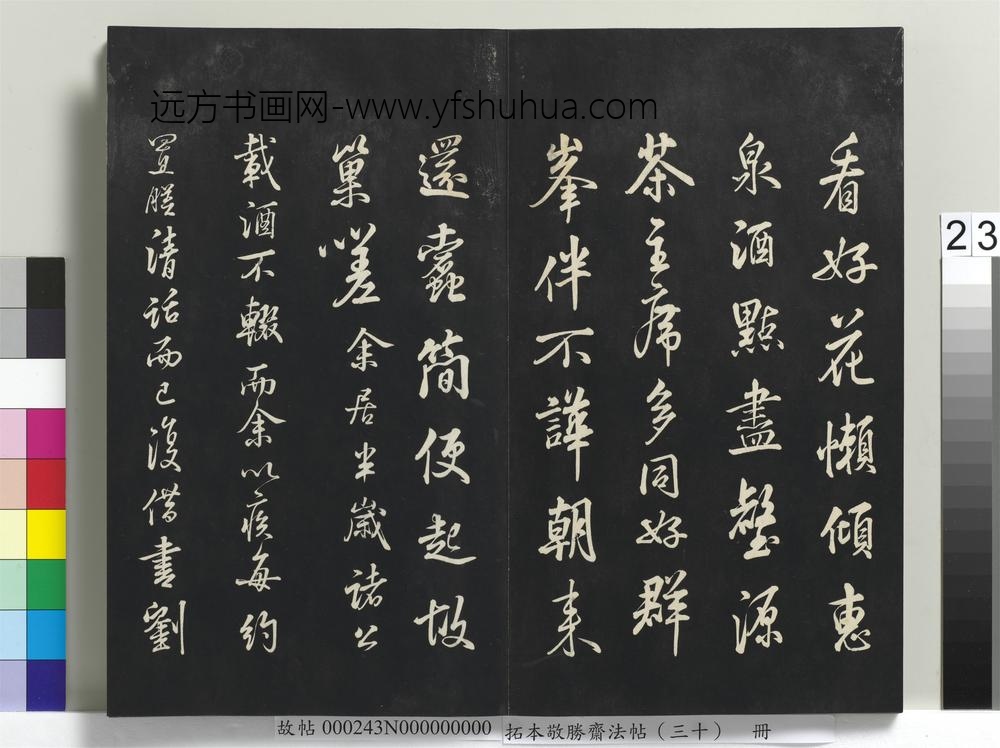 远方书画网-www.yfshuhua.com
看好花懶傾惠
泉酒點盡壑源
茶主席多同好群
峯伴不譁朝来
還蠹簡便起故
巢嗟余居半歲諸公
載酒不輟而余以疾每約
置膳清話而已復借書劉
23
故帖 000243N000000000
拓本敬勝齋法帖（三十） 冊